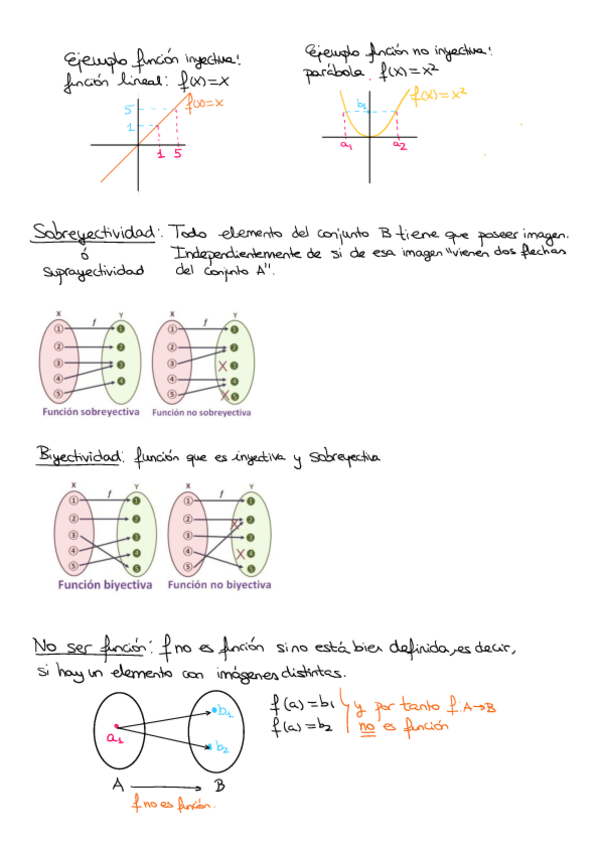 Ejemplo función inyectiva:
función lineal: f(x)=x
f(x)=x
5
1
1 5
Ejemplo función no inyectiva:
parábola: f(x)=x²
f(x)=x²
b₁
a₁ a₂
Sobreyectividad: Todo elemento del conjunto B tiene que poseer imagen.
ó Independientemente de si de esa imagen "vienen dos flechas
suprayectividad del conjunto A".
X f Y
1 1
2 2
3 3
4 4
5
Función sobreyectiva
X f Y
1 1
2 2
3 X 3
4 4
5 X 5
Función no sobreyectiva
Biyectividad: función que es inyectiva y sobreyectiva
X f Y
1 1
2 2
3 3
4 4
5 5
Función biyectiva
X f Y
1 1
2 X 2
3 3
4 X 4
5 5
Función no biyectiva
No ser función: f no es función si no está bien definida, es decir,
si hay un elemento con imágenes distintas.
a₁
b₁
b₂
A → B
f no es función.
f(a)=b₁ y por tanto f:A→B
f(a)=b₂ no es función